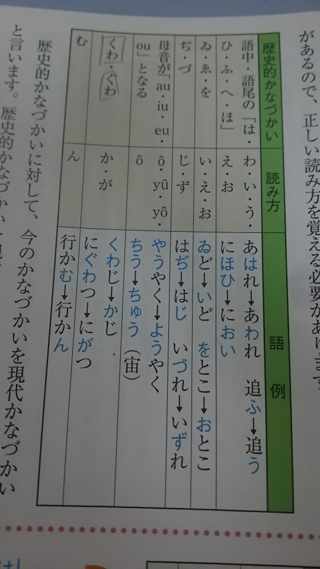 があるので、正しい読み方を覚える必要があります。
歴史的かなづかい
読み方
語例
語中・語尾の「は・
ひ・ふ・へ・ほ」
わ・い・う・
え・お
あはれ→あわれ 追ふ→追う
にほひ→におい
ゐ・ゑ・を
い・え・お
ゐど→いど をとこ→おとこ
ぢ・づ
じ・ず
はぢ→はじ いづれ→いずれ
母音が「au・iu・eu・
ou」となる
ô・yû・yô・
ô
やうやく→ようやく
ちう→ちゅう(宙)
くわ・ぐわ
か・が
くわじ→かじ
にぐわつ→にがつ
む
ん
行かむ→行かん
歴史的かなづかいに対して、今のかなづかいを現代かなづかい
と言います。